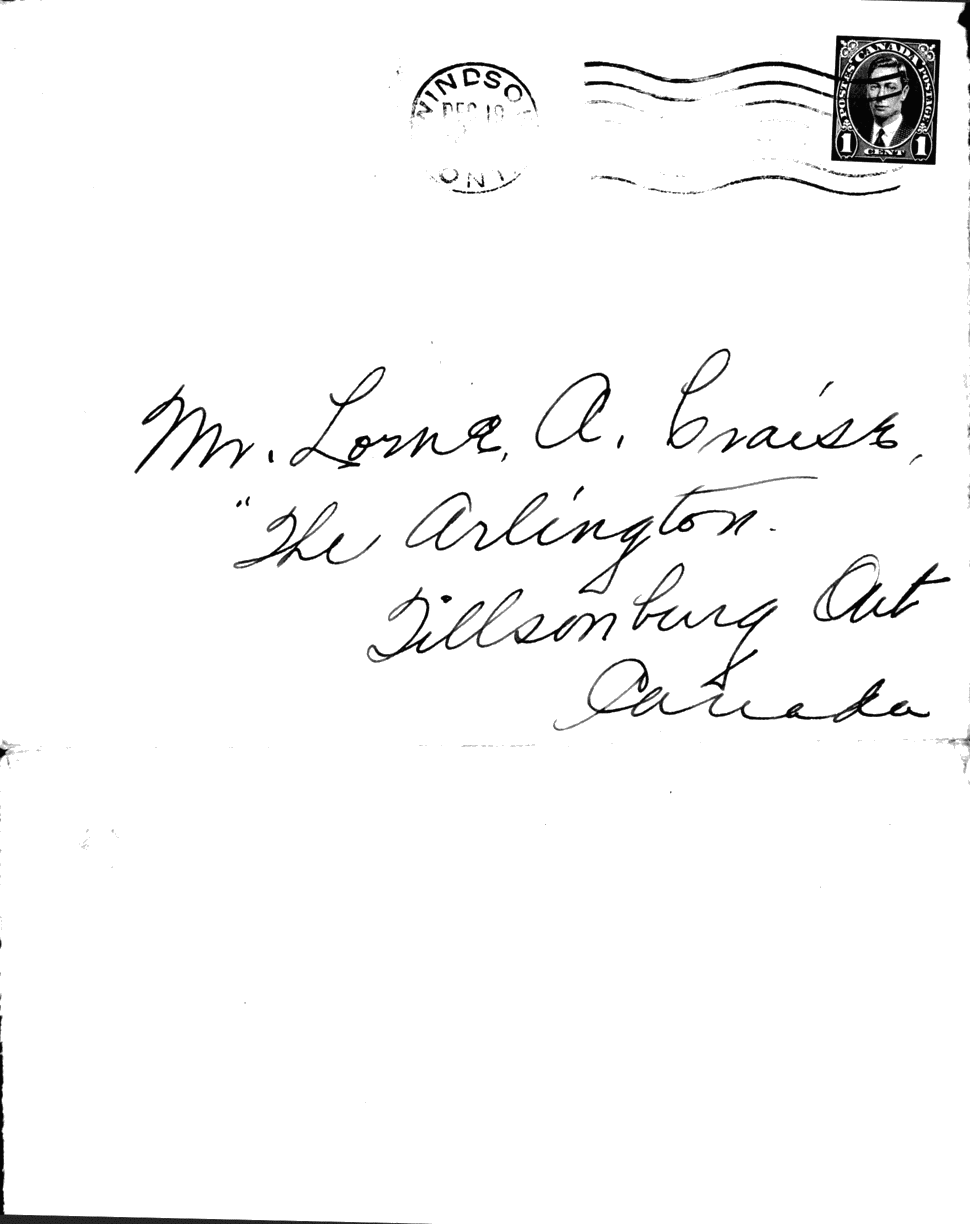 WINDSO
DEC 19
ONT
POSTES CANADA POSTAGE
1 CENT 1
Mr. Lorne, A. Craise,
"The Arlington.
Tillsonburg Ont
Canada